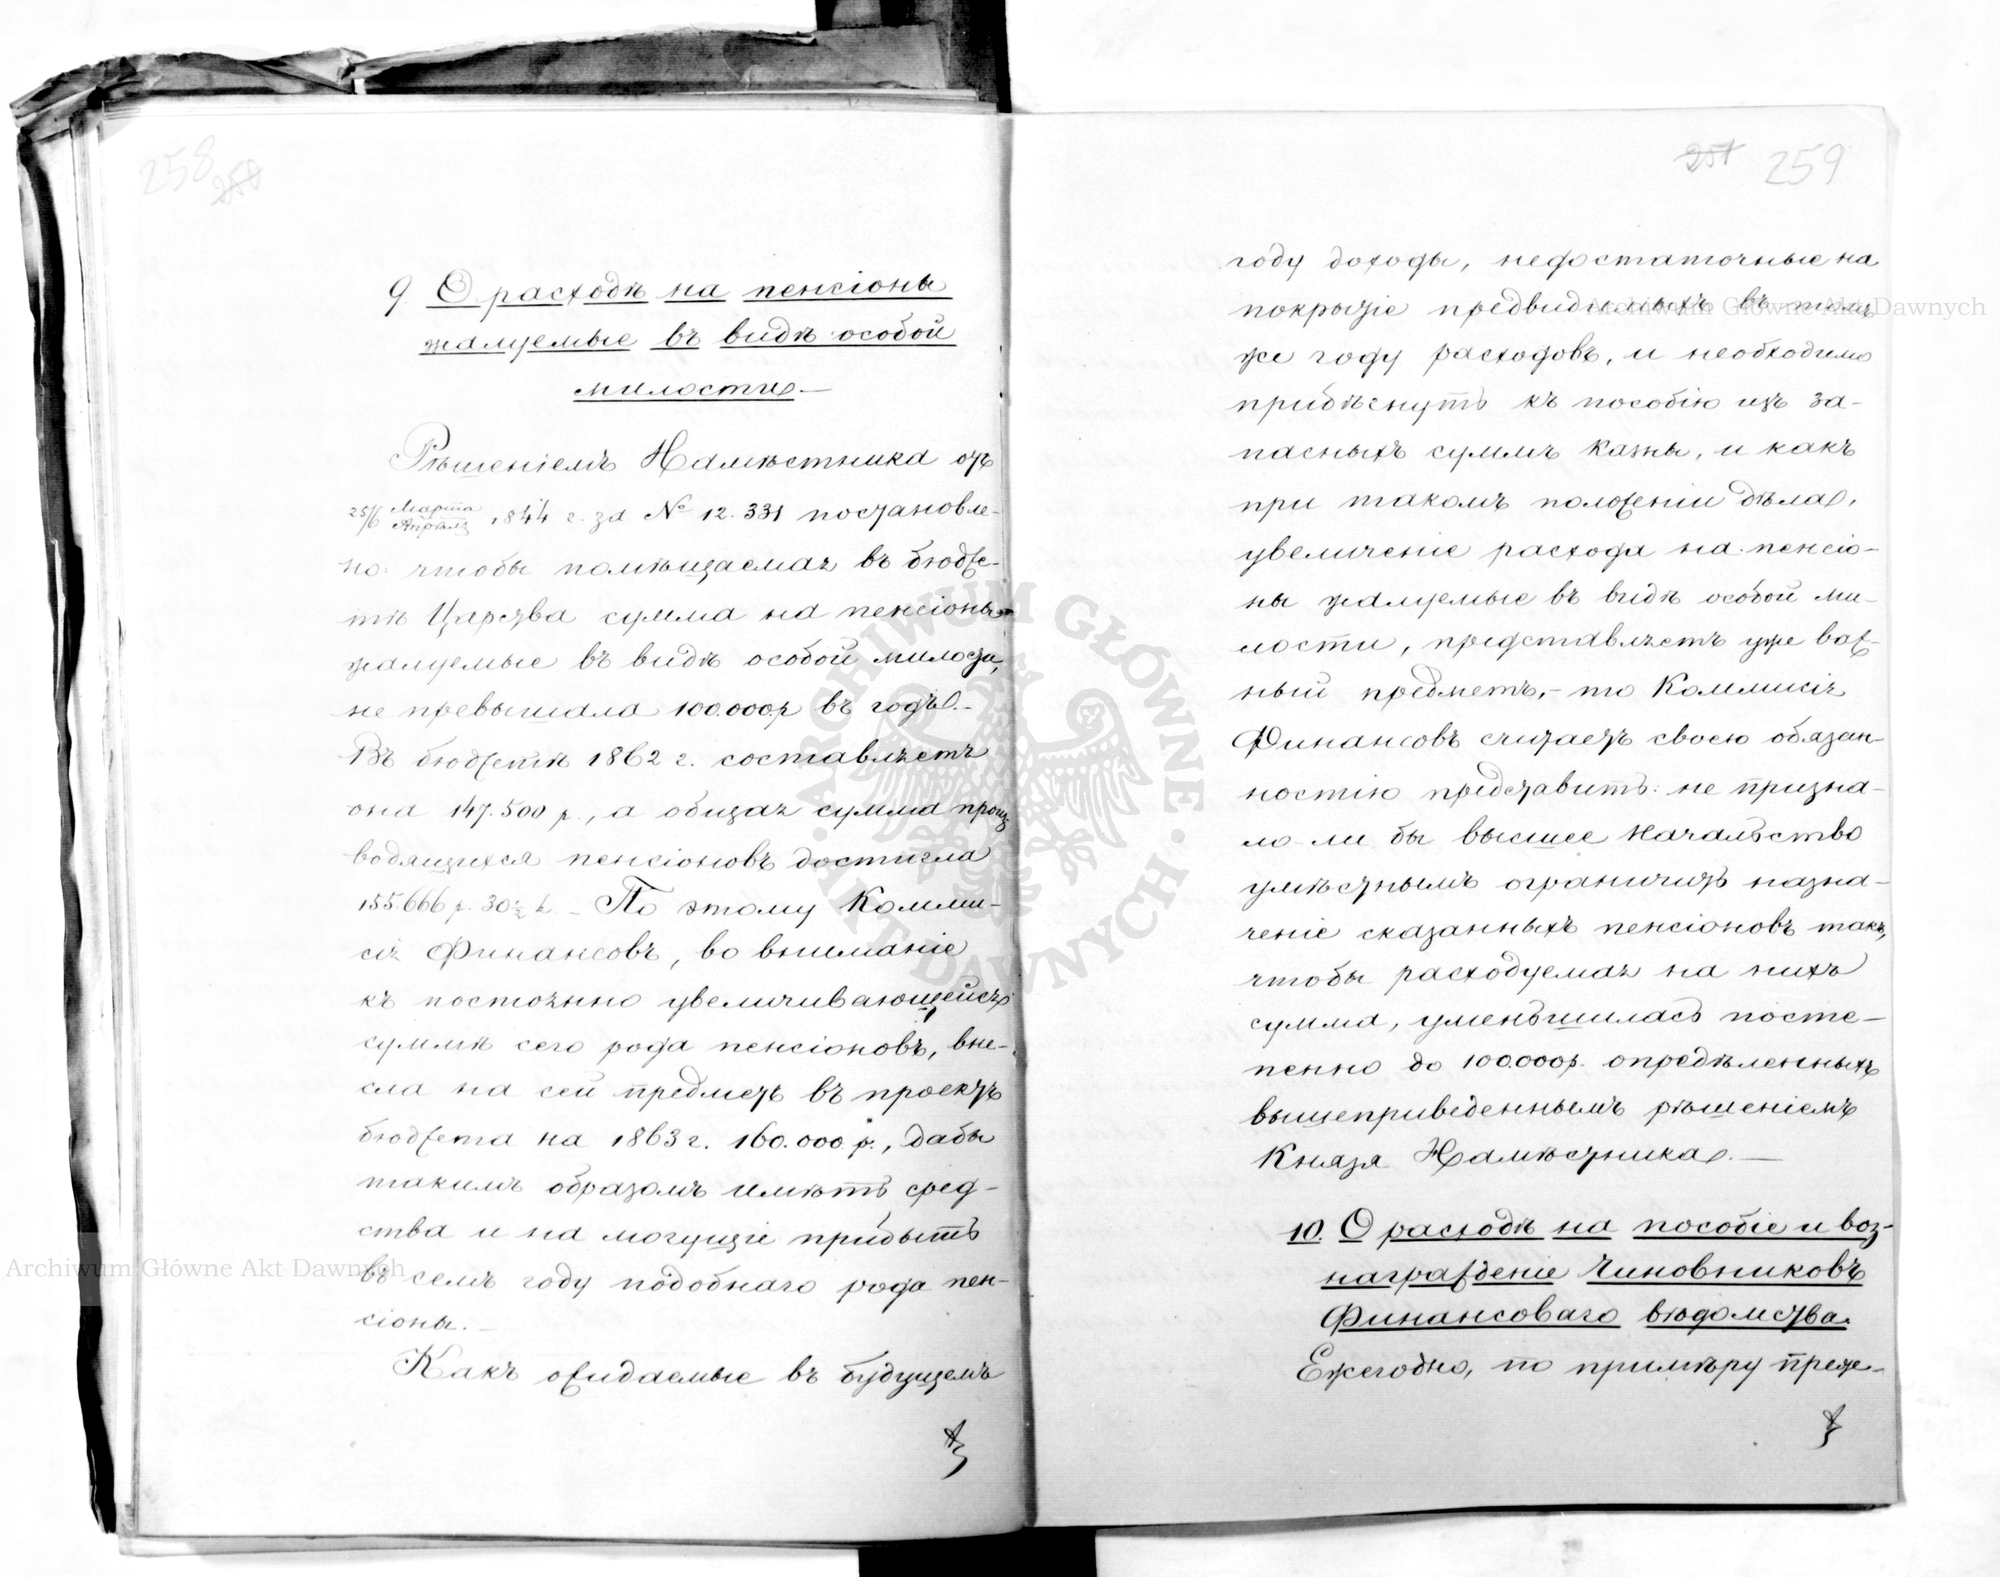 258
9. О расходѣ на пенсіоны
жалуемые въ видѣ особой
милости.—
Рѣшеніемъ Намѣстника отъ
25/6 Марта/Апрѣля 1844 г. за № 12.331 постановле-
но: чтобы помѣщаемая въ бюдже-
тѣ Царства сумма на пенсіоны
жалуемые въ видѣ особой милости,
не превышала 100.000 р. въ годъ.—
Въ бюджетѣ 1862 г. составляетъ
она 147.500 р., а общая сумма произ
водящихся пенсіоновъ достигла
155.666 р. 30½ к. — По этому Комми-
сія Финансовъ, во вниманіе
къ постоянно увеличивающейся
суммѣ сего рода пенсіоновъ, вне-
сла на сей предметъ въ проектъ
бюджета на 1863 г. 160.000 р., дабы
такимъ образомъ имѣть сред-
ства и на могущіе прибыть
въ семъ году подобнаго рода пен-
сіоны.—
Какъ ожидаемые въ будущемъ
257 259
году доходы, недостаточные на
покрытіе предвидимыхъ въ томъ
же году расходовъ, и необходимо
прибѣгнуть къ пособію изъ за-
пасныхъ суммъ казны, и какъ
при такомъ положеніи дѣла,
увеличеніе расхода на пенсіо-
ны жалуемые въ видѣ особой ми-
лости, представляетъ уже важ-
ный предметъ,— то Коммисія
Финансовъ считаетъ своею обязан-
ностію представить: не призна-
ло ли бы высшее Начальство
умѣстнымъ ограничить назна-
ченіе сказанныхъ пенсіоновъ такъ,
чтобы расходуемая на нихъ
сумма, уменьшилась посте-
пенно до 100.000 р. опредѣленныхъ
вышеприведеннымъ рѣшеніемъ
Князя Намѣстника.—
10. О расходѣ на пособіе и воз-
награжденіе Чиновниковъ
Финансоваго вѣдомства.
Ежегодно, по примѣру преже-
Archiwum Główne Akt Dawnych
Archiwum Główne Akt Dawnych
ARCHIWUM GŁÓWNE · AKT DAWNYCH ·